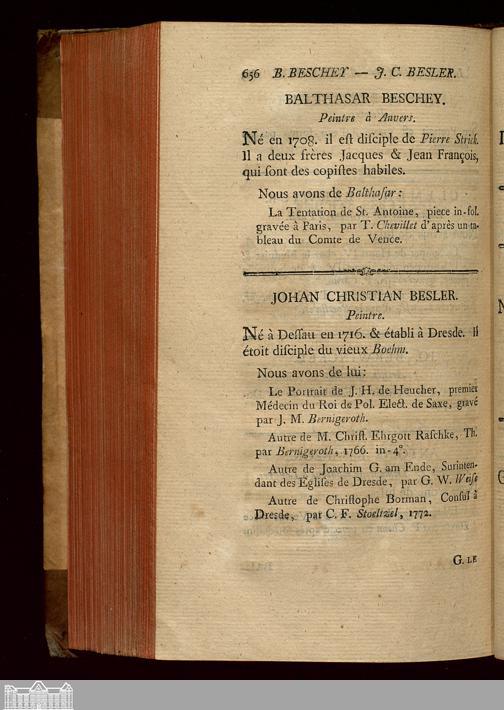 656 B. BESCHEY — J. C. BESLER.
BALTHASAR BESCHEY.
Peintre à Anvers.
Né en 1708. il eſt diſciple de Pierre Strick.
Il a deux frères Jacques & Jean François,
qui ſont des copiſtes habiles.
Nous avons de Balthaſar:
La Tentation de St. Antoine, piece in-fol.
gravée à Paris, par T. Chevillet d'après un ta-
bleau du Comte de Vence.
JOHAN CHRISTIAN BESLER.
Peintre.
Né à Deſſau en 1716. & établi à Dresde. Il
étoit diſciple du vieux Boehm.
Nous avons de lui:
Le Portrait de J. H. de Heucher, premier
Médecin du Roi de Pol. Elect. de Saxe, gravé
par J. M. Bernigeroth.
Autre de M. Chriſt. Ehrgott Raſchke, Th.
par Bernigeroth, 1766. in-4°.
Autre de Joachim G. am Ende, Surinten-
dant des Egliſes de Dresde, par G. W. Weiſe
Autre de Chriſtophe Borman, Conſul à
Dresde, par C. F. Stoeltzel, 1772.
G. LE